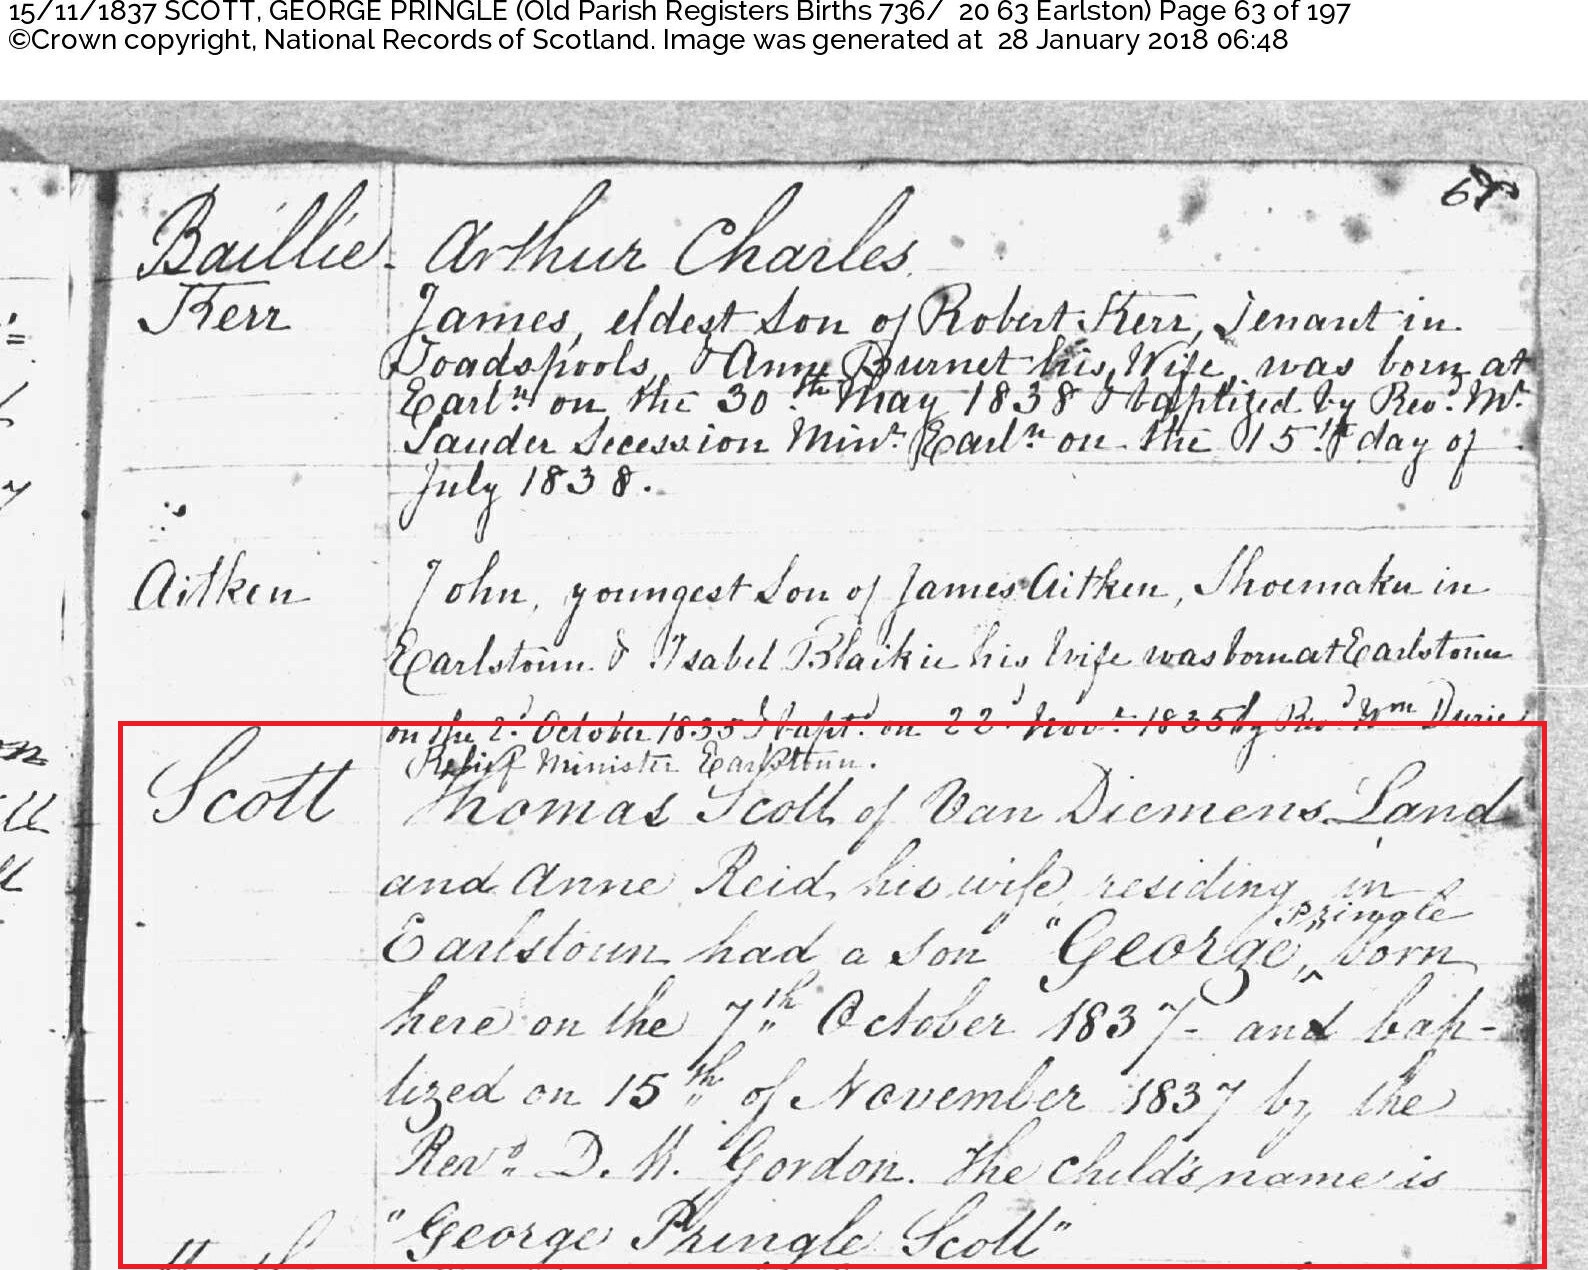 15/11/1837 SCOTT, GEORGE PRINGLE (Old Parish Registers Births 736/ 20 63 Earlston) Page 63 of 197
©Crown copyright, National Records of Scotland. Image was generated at 28 January 2018 06:48
Baillie - Arthur Charles
Kerr James, eldest Son of Robert Kerr, Tenant in
Toadspools, & Ann Burnet his Wife, was born at
Earln. on the 30th May 1838 & baptized by Revd. Mr.
Lauder Secession Minr. Earln. on the 15th day of
July 1838.
Aitken John, youngest Son of James Aitken, Shoemaker in
Earlstoun & Isabel Blaikie his Wife was born at Earlstoun
on the 2d October 1835 & bapt. on 22d Novr. 1835 by Revd Wm Durie
Relief Minister Earlstoun.
Scott Thomas Scott of Van Diemens Land
and Anne Reid his wife, residing in
Pringle
Earlstoun had a son "George, ^ born
here on the 7th October 1837- and bap-
tized on 15th of November 1837 by the
Revd. D. W. Gordon. The child's name is
"George Pringle Scott"